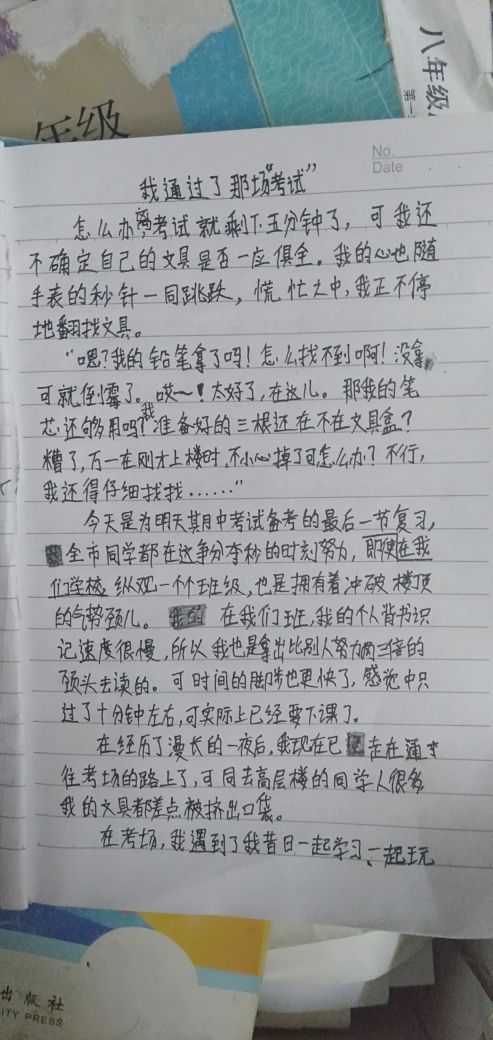 八年级
第一
年级
No.
Date
我通过了那场"考试"
怎么办,离考试就剩下五分钟了,可我还
不确定自己的文具是否一应俱全。我的心也随
手表的秒针一同跳跃,慌忙之中,我正不停
地翻找文具。
"嗯?我的铅笔拿了吗!怎么找不到啊!没拿
可就倒霉了。哎~!太好了,在这儿。那我的笔
芯还够用吗?我准备好的三根还在不在文具盒?
糟了,万一在刚才上楼时,不小心掉了可怎么办?不行,
我还得仔细找找……"
今天是为明天期中考试备考的最后一节复习,
全市同学都在这争分夺秒的时刻努力,即使在我
们学校,纵观一个个班级,也是拥有着冲破楼顶
的气势颈儿。我的在我们班,我的个人背书识
记速度很慢,所以我也是拿出比别人努力两三倍的
颈头去读的。可时间的脚步也更快了,感觉中只
过了十分钟左右,可实际上已经要下课了。
在经历了漫长的一夜后,我现在已走在通
往考场的路上了,可同去高层楼的同学人很多
我的文具都差点被挤出口袋。
在考场,我遇到了我昔日一起学习、一起玩
出版社
ITY PRESS